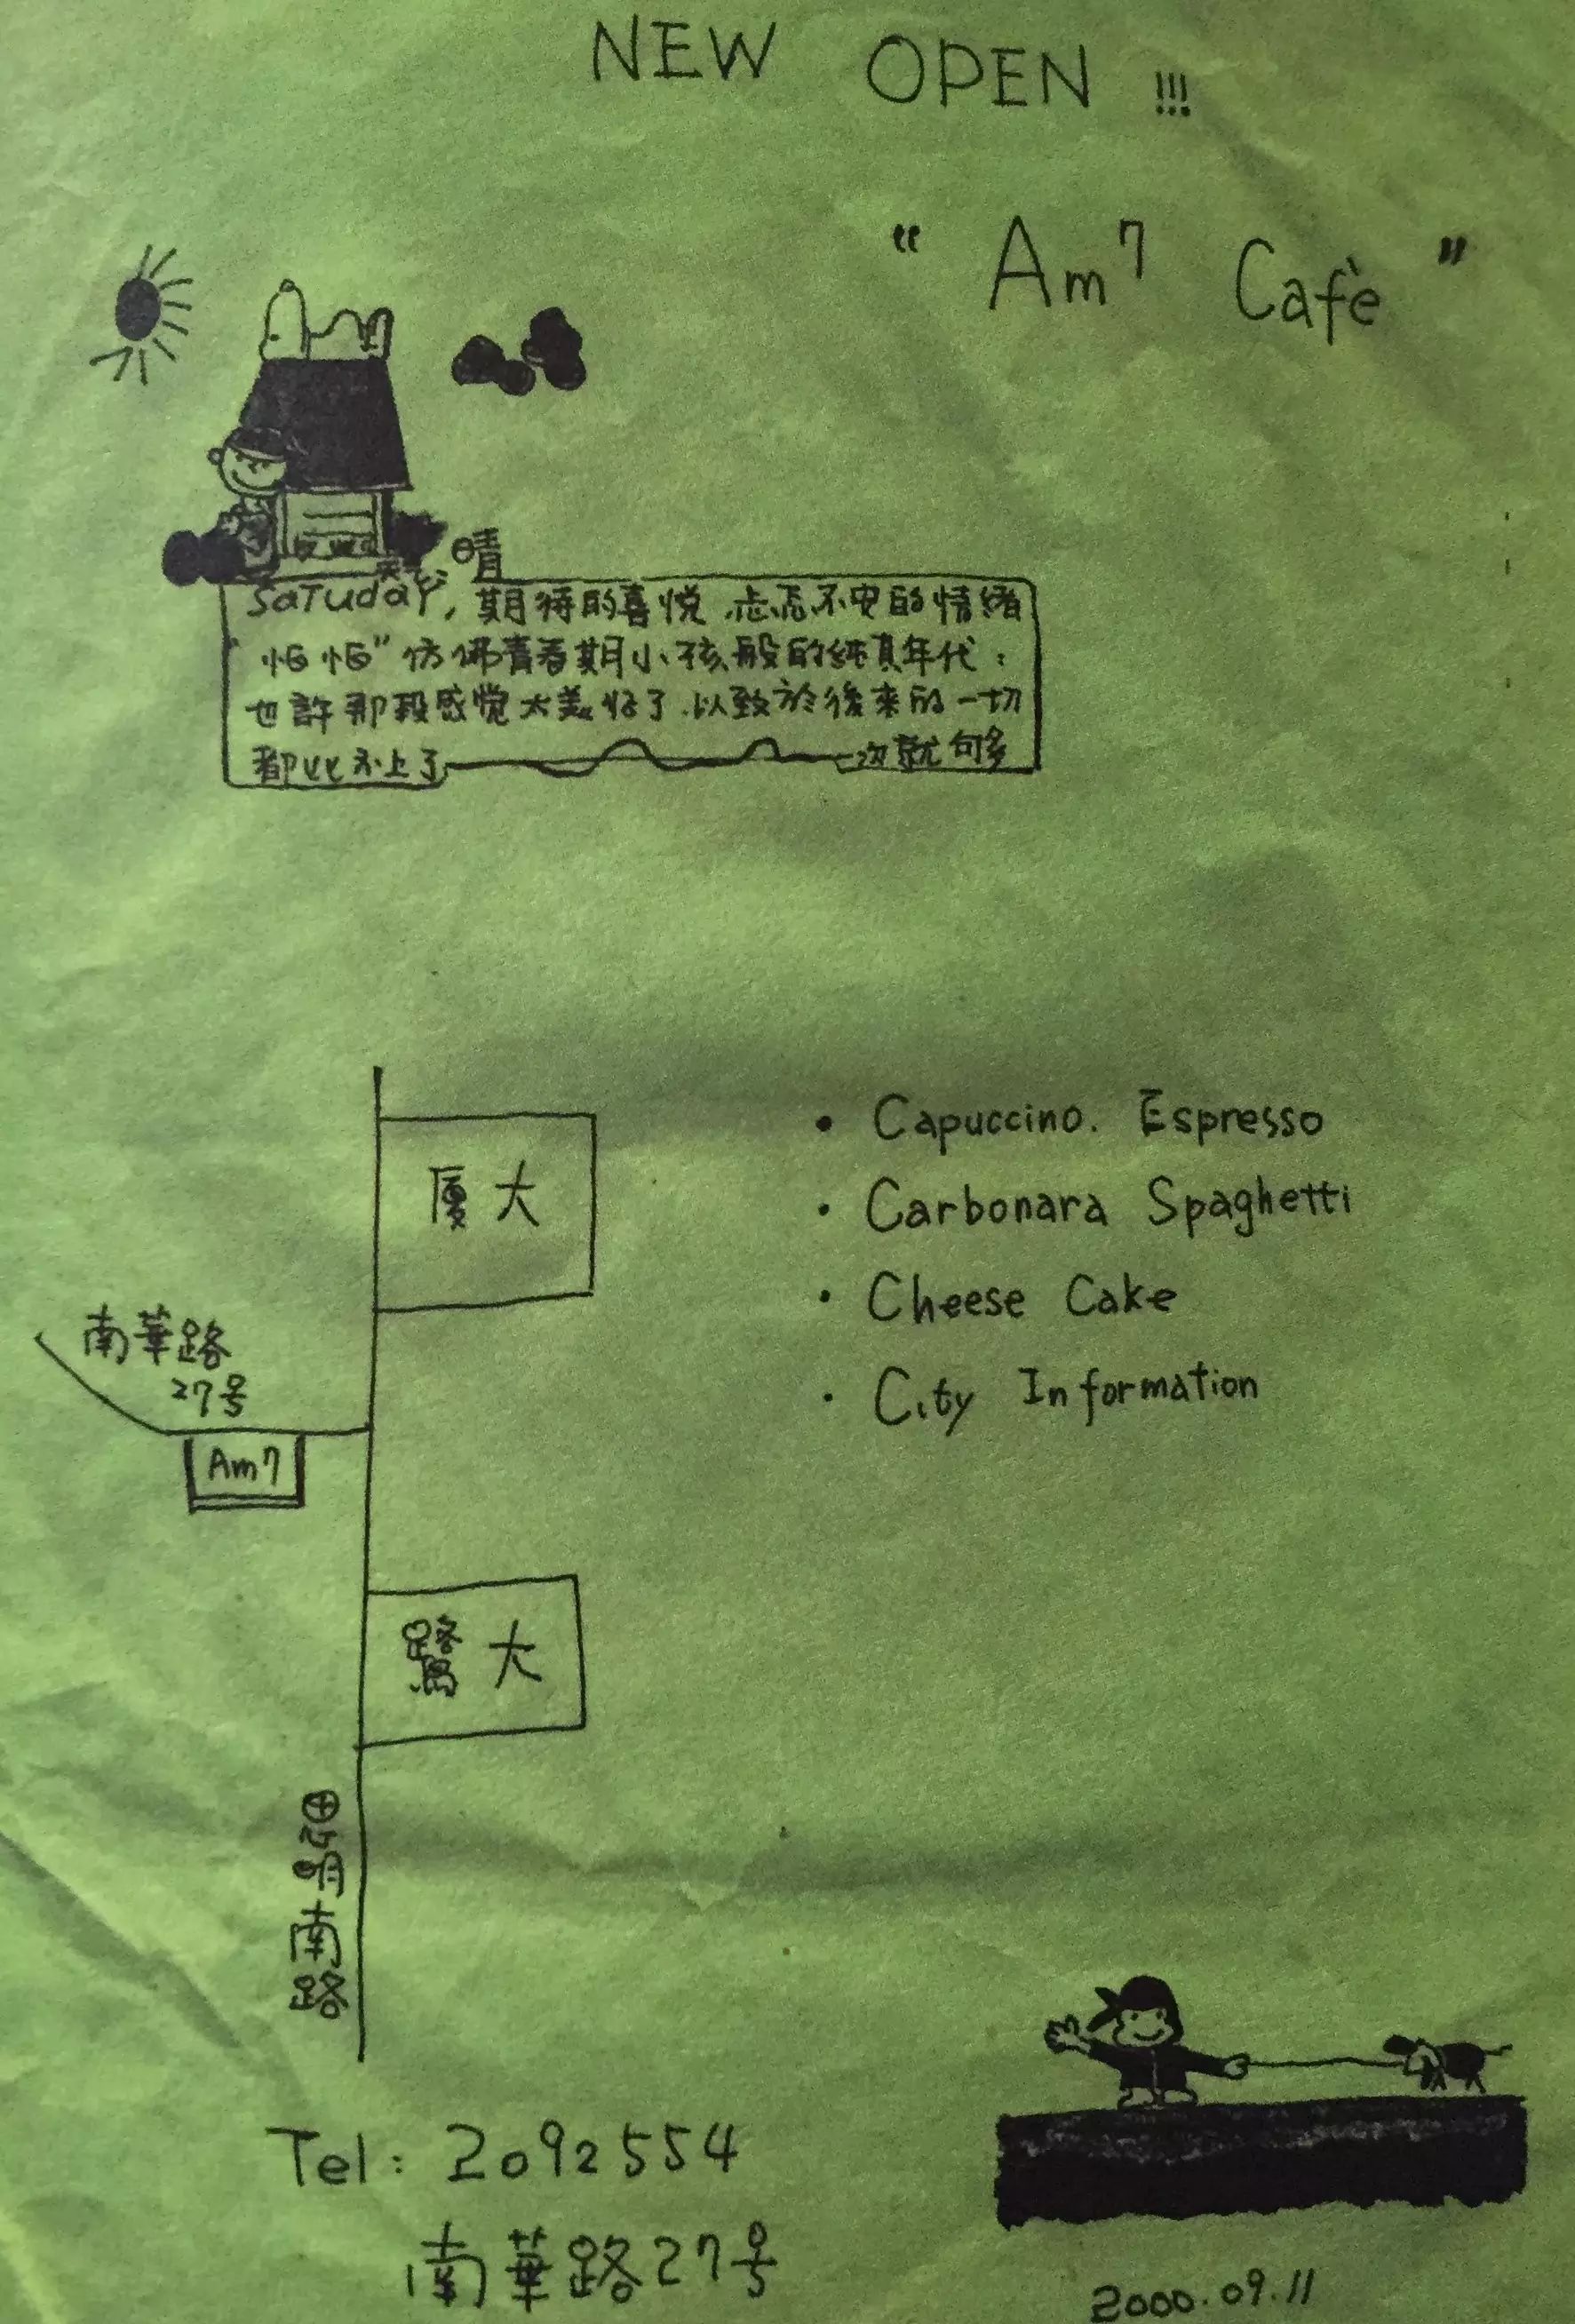 NEW OPEN !!!
“ Am7 Cafè ”
天气:晴
SaTuday, 期待的喜悅.忐忑不安的情緒
“恼恼”仿彿青春期小孩般的純真年代;
也許那段感觉太美好了.以致於後来的一切
都比不上了 一次就句多
厦大
• Capuccino. Espresso
• Carbonara Spaghetti
• Cheese Cake
• City Information
南華路
27号
Am7
鷺大
思明南路
Tel: 2092554
南華路27号
2000.09.11